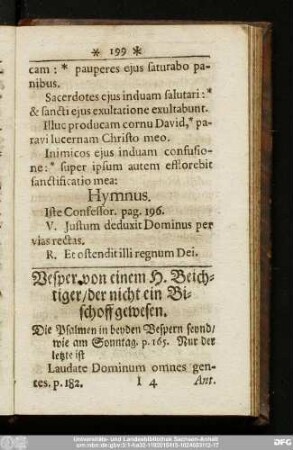 * 199 *
cam: * pauperes ejus saturabo pa-
nibus.
Sacerdotes ejus induam salutari: *
& sancti ejus exultatione exultabunt.
Illuc producam cornu David, * pa-
ravi lucernam Christo meo.
Inimicos ejus induam confusio-
ne: * super ipsum autem efflorebit
sanctificatio mea:
Hymnus.
Iste Confessor. pag. 196.
V. Justum deduxit Dominus per
vias rectas.
R. Et ostendit illi regnum Dei.
Vesper von einem H. Beich-
tiger/der nicht ein Bi-
schoff gewesen.
Die Psalmen in beyden Vespern seynd/
wie am Sonntag. p. 165. Nur der
letzte ist
Laudate Dominum omnes gen-
tes. p. 182.
I 4
Ant.
Universitäts- und Landesbibliothek Sachsen-Anhalt
DFG